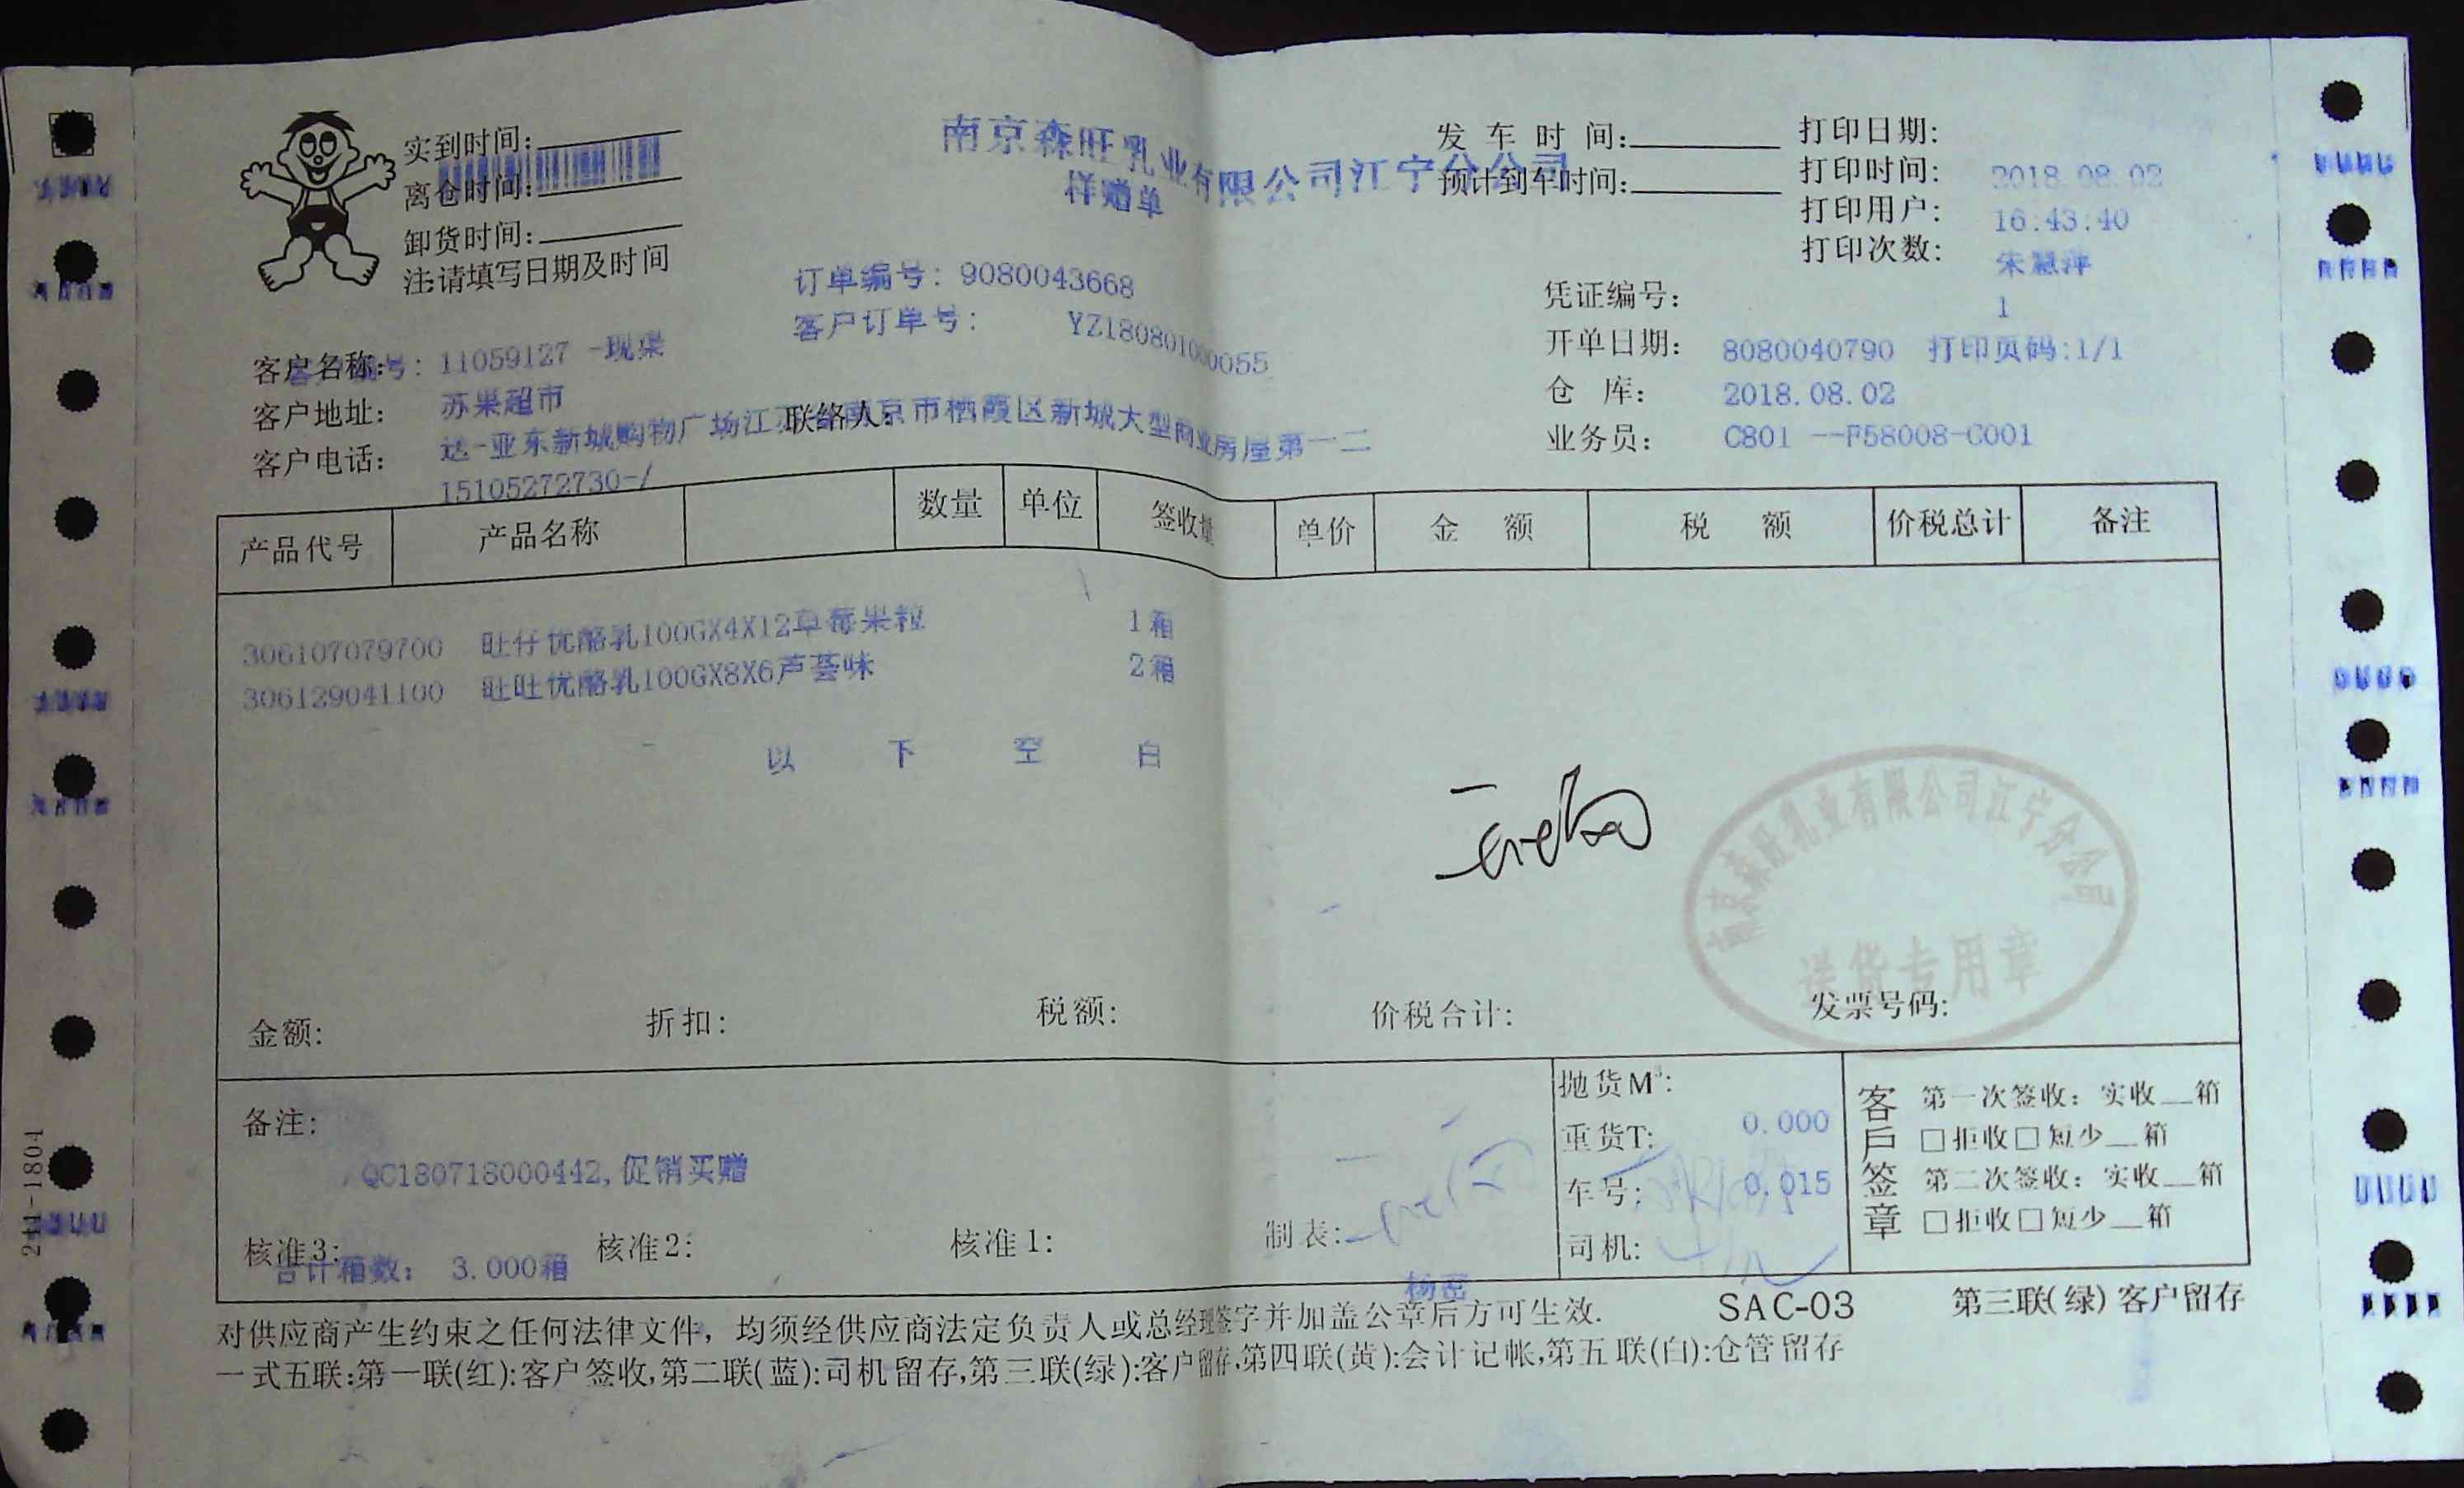 实到时间:
离仓时间:
卸货时间:
注:请填写日期及时间
南京森旺乳业有限公司江宁分公司
样赠单
发车时间:
预计到车时间:
打印日期: 2018.08.02
打印时间: 16:43:40
打印用户: 朱慧萍
打印次数: 1
订单编号: 9080043668
客户订单号: YZ180801000055
凭证编号: 8080040790 打印页码:1/1
开单日期: 2018.08.02
仓 库: C801 --F58008-C001
业务员:
客户名称:
客户编号: 11059127 -现渠
苏果超市
客户地址:
达-亚东新城购物广场江苏省南京市栖霞区新城大型商业房屋第一二
联络人:
客户电话: 15105272730-/
产品代号 产品名称 数量 单位 签收量 单价 金 额 税 额 价税总计 备注
306107079700 旺仔优酪乳100GX4X12草莓果粒 1箱
306129041100 旺旺优酪乳100GX8X6芦荟味 2箱
以 下 空 白
南京森旺乳业有限公司江宁分公司
送货专用章
金额: 折扣: 税额: 价税合计: 发票号码:
备注:
QC180718000442,促销买赠
核准3: 核准2: 核准1: 制表: 杨密
合计箱数: 3.000箱
抛货M³: 0.000
重货T: 0.015
车号:
司机:
客戶签章
第一次签收: 实收__箱
□拒收□短少__箱
第二次签收: 实收__箱
□拒收□短少__箱
SAC-03 第三联(绿)客户留存
对供应商产生约束之任何法律文件, 均须经供应商法定负责人或总经理签字并加盖公章后方可生效.
一式五联:第一联(红):客户签收,第二联(蓝):司机留存,第三联(绿):客户留存,第四联(黄):会计记帐,第五联(白):仓管留存
211-1804